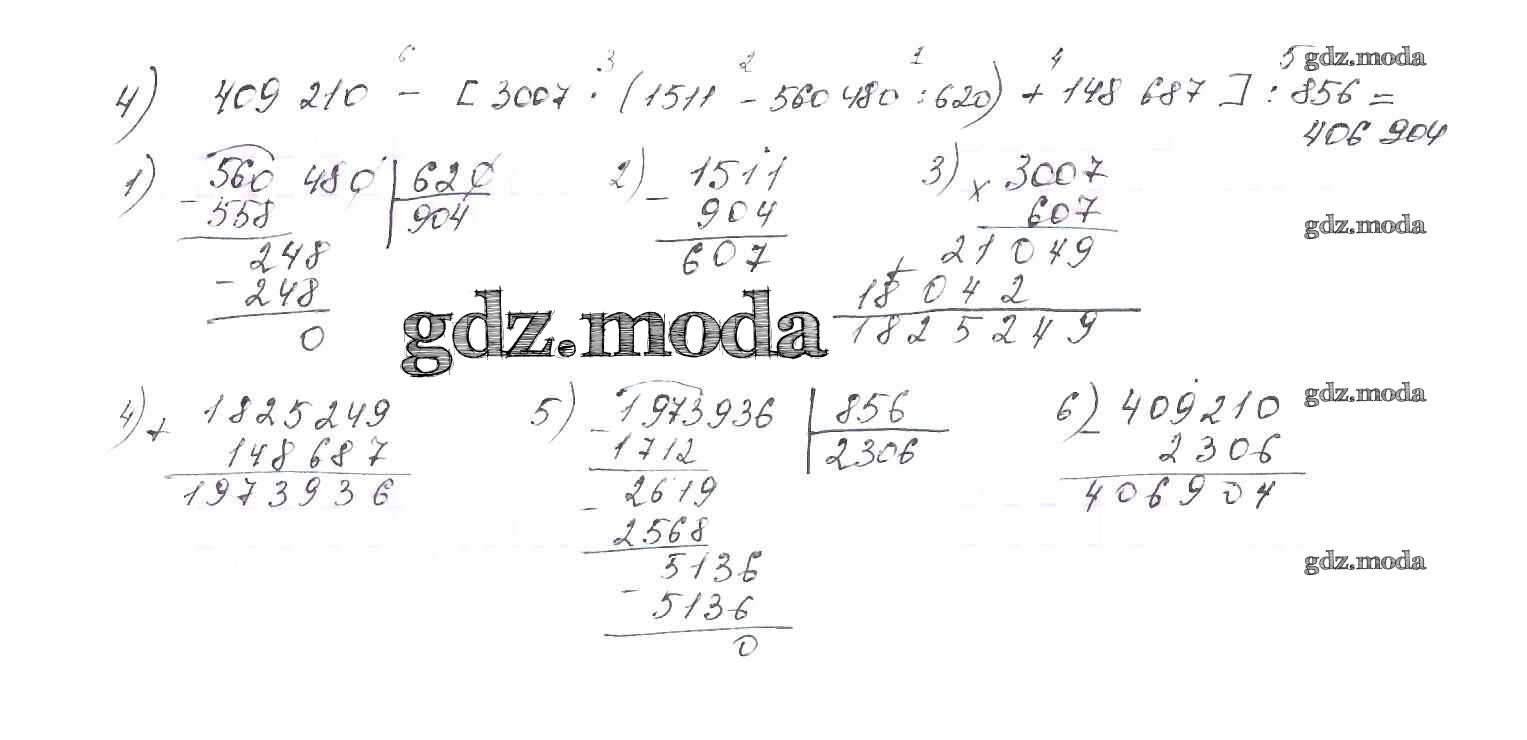 6 3 2 1 4 5 gdz.moda
4) 409 210 - [ 3007 · (1511 - 560 480 : 620) + 148 687 ] : 856 =
406 904
1) 560 480 | 620 2) - 1511 3) x 3007
- 558 904 904 607 gdz.moda
248 607 + 21 049
- 248 18 042
0 gdz.moda 1825249
4) + 1825249 5) - 1973936 | 856 6) - 409210 gdz.moda
148687 1712 2306 2306
1973936 - 2619 406904
2568
5136 gdz.moda
- 5136
0